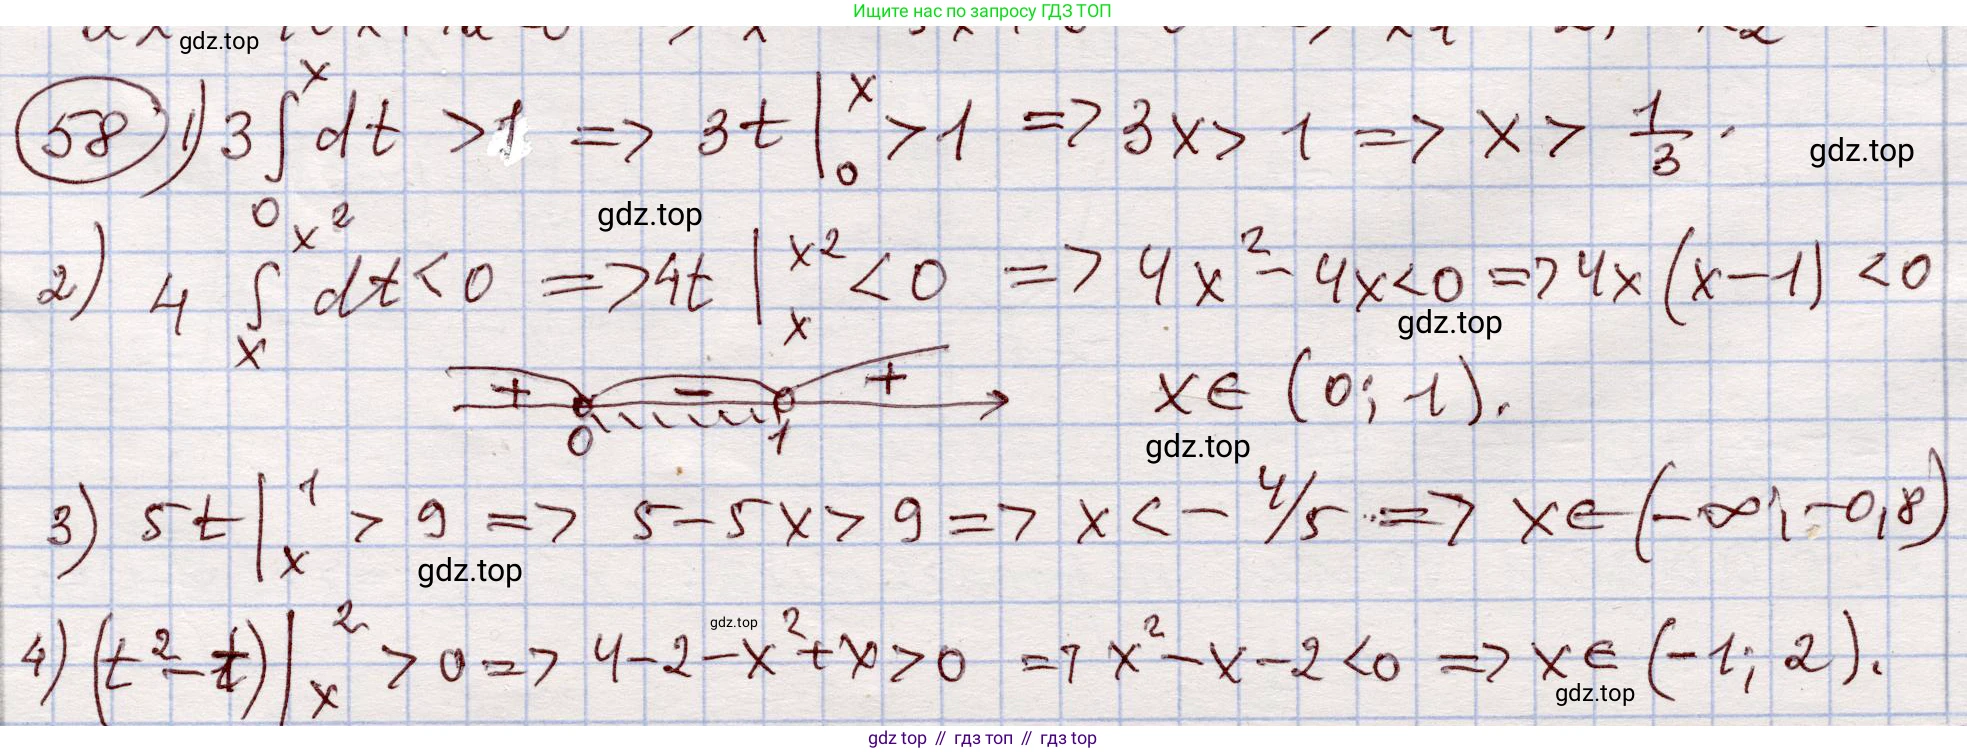 Ищите нас по запросу ГДЗ ТОП
gdz.top
58 1) 3 ∫₀ˣ dt > 1 => 3t |₀ˣ > 1 => 3x > 1 => x > 1/3.
gdz.top
gdz.top
2) 4 ∫ₓ^(x²) dt < 0 => 4t |ₓ^(x²) < 0 => 4x² - 4x < 0 => 4x(x-1) < 0
gdz.top
+ - +
0 1
x ∈ (0; 1).
gdz.top
3) 5t |ₓ¹ > 9 => 5 - 5x > 9 => x < - 4/5 => x ∈ (-∞; -0,8)
gdz.top
gdz.top
4) (t² - t) |ₓ² > 0 => 4 - 2 - x² + x > 0 => x² - x - 2 < 0 => x ∈ (-1; 2).
gdz.top
gdz top // гдз топ // гдз top